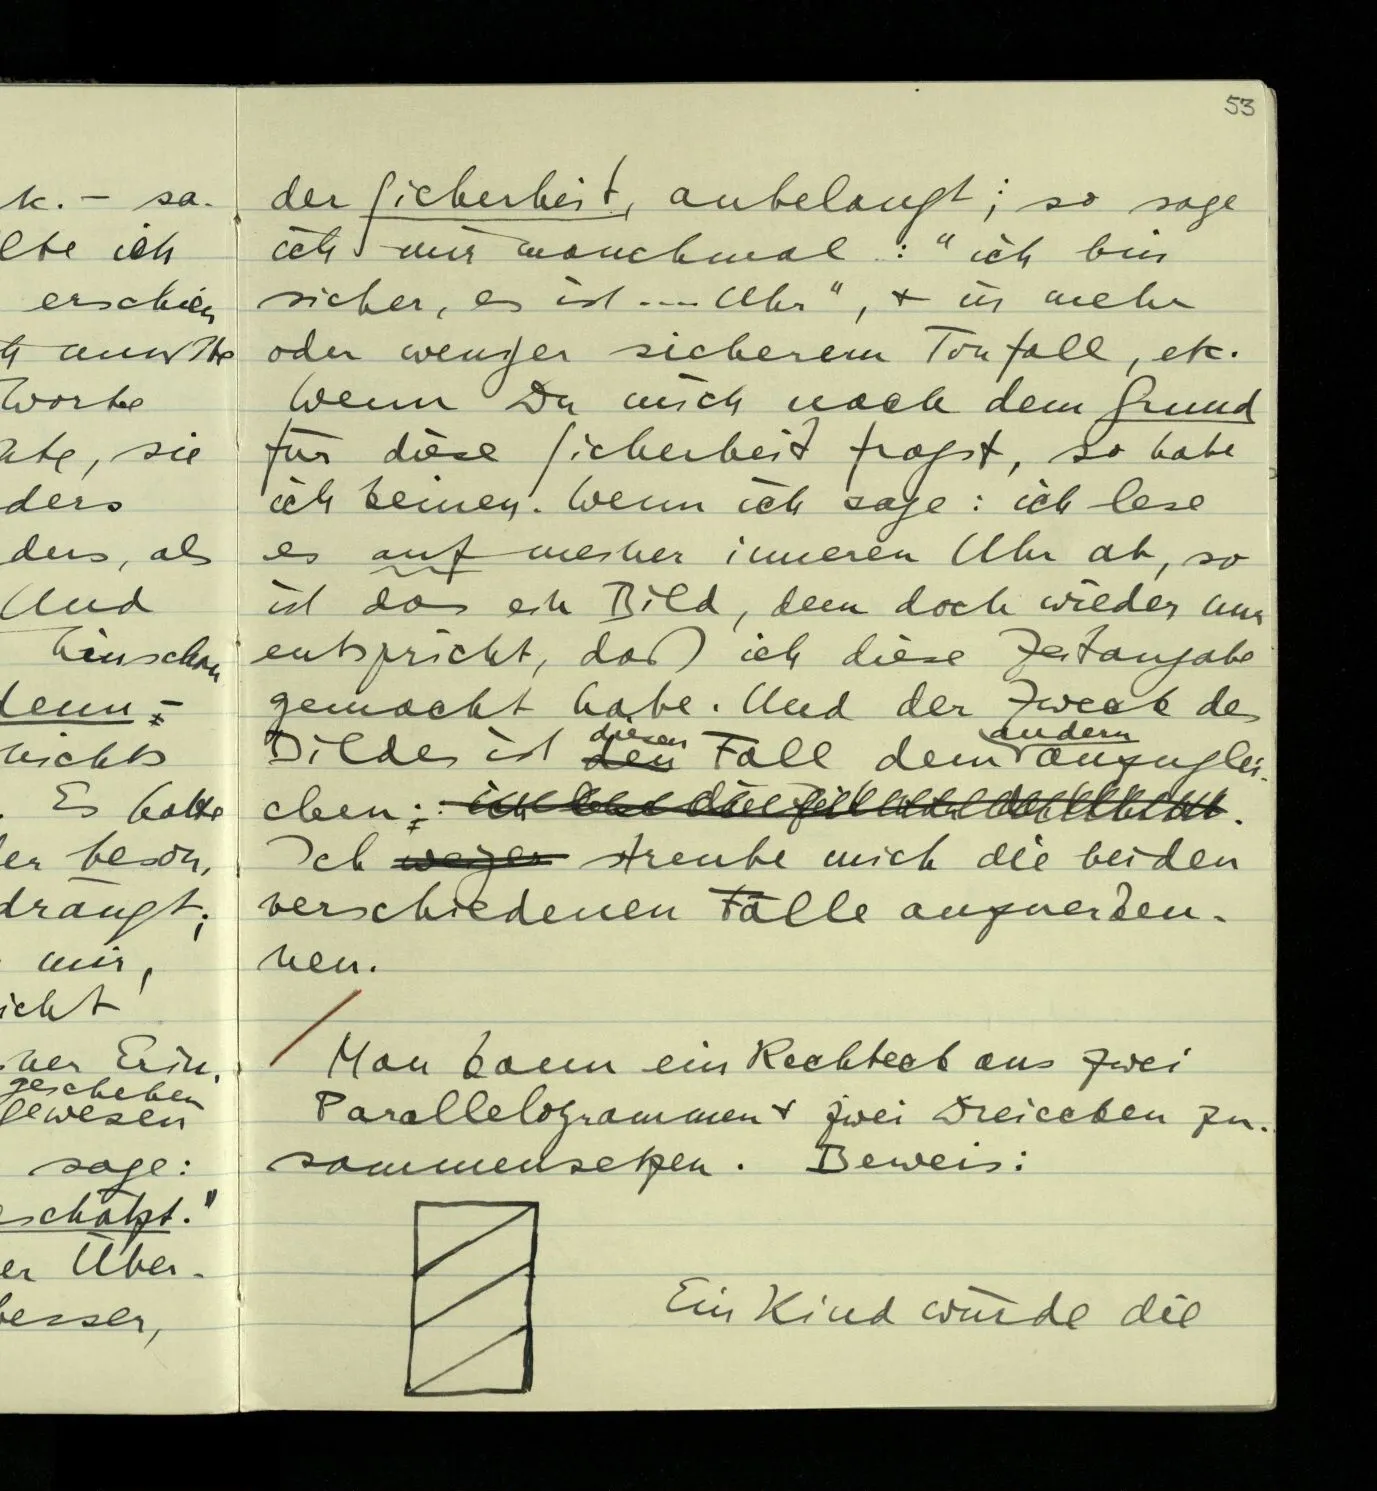 53
k. – sa-
lte ich
erschien
Worte
äte, sie
ders
ders, als
Und
hinschau
denn
nichts
. Es hatte
er beson,
drängt;
mir,
icht
ner Erin,
geschehen
gewesen
sage:
eschätzt."
er Über-
besser,
der Sicherheit, anbelangt; so sage
ich mir manchmal : "ich bin
sicher, es ist .... Uhr", + in mehr
oder weniger sicherem Tonfall, etc.
Wenn Du mich nach dem Grund
für diese Sicherheit fragst, so habe
ich keinen. Wenn ich sage: ich lese
es auf meiner inneren Uhr ab, so
ist das ein Bild, dem doch wieder nur
entspricht, daß ich diese Zeitangabe
gemacht habe. Und der Zweck des
diesen andern
Bildes ist den Fall dem anzuglei-
chen;
Ich weiger streube mich die beiden
verschiedenen Fälle anzuerken-
nen.
Man kann ein Rechteck aus zwei
Parallelogrammen + zwei Dreiecken zu-
sammensetzen. Beweis:
Ein Kind würde die